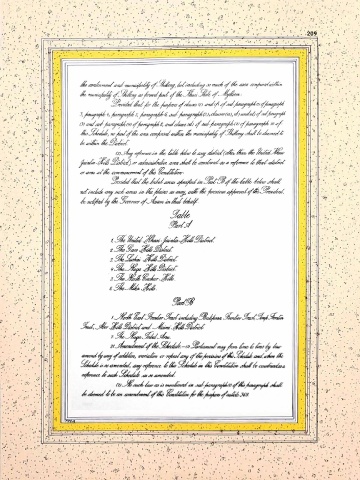 209
the cantonment and municipality of Shillong, but including so much of the area comprised within
the municipality of Shillong as formed part of the Khasi State of Mylliem:
Provided that for the purposes of clauses (e) and (f) of sub-paragraph (1) of paragraph
3, paragraph 4, paragraph 5, paragraph 6, sub-paragraph (2), clauses (a), (b) and (d) of sub-paragraph
(3) and sub-paragraph (4) of paragraph 8, and clause (d) of sub-paragraph (2) of paragraph 10 of
this Schedule, no part of the area comprised within the municipality of Shillong shall be deemed to
be within the District.
(3) Any reference in the table below to any district (other than the United Khasi-
Jaintia Hills District) or administrative area shall be construed as a reference to that district
or area at the commencement of this Constitution:
Provided that the tribal areas specified in Part B of the table below shall
not include any such areas in the plains as may, with the previous approval of the President,
be notified by the Governor of Assam in that behalf.
Table
Part A
1. The United Khasi-Jaintia Hills District.
2. The Garo Hills District.
3. The Lushai Hills District.
4. The Naga Hills District.
5. The North Cachar Hills.
6. The Mikir Hills.
Part B
1. North East Frontier Tract including Balipara Frontier Tract, Tirap Frontier
Tract, Abor Hills District and Misimi Hills District.
2. The Naga Tribal Area.
21. Amendment of the Schedule.—(1) Parliament may from time to time by law
amend by way of addition, variation or repeal any of the provisions of this Schedule and, when the
Schedule is so amended, any reference to this Schedule in this Constitution shall be construed as a
reference to such Schedule as so amended.
(2) No such law as is mentioned in sub-paragraph (1) of this paragraph shall
be deemed to be an amendment of this Constitution for the purposes of article 368.